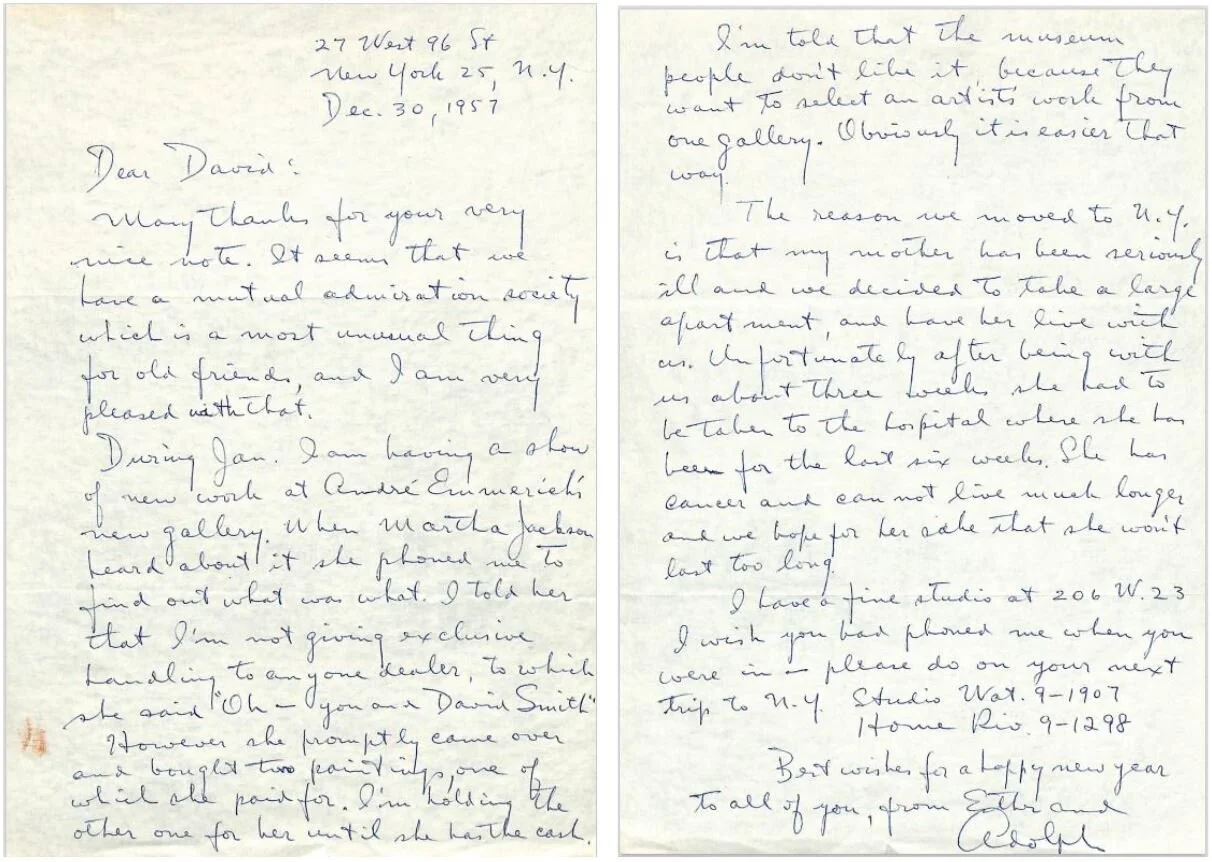 27 West 96 St
New York 25, N.Y.
Dec. 30, 1957
Dear David:
Many thanks for your very
nice note. It seems that we
have a mutual admiration society
which is a most unusual thing
for old friends, and I am very
pleased with that.
During Jan. I am having a show
of new work at André Emmerich's
new gallery. When Martha Jackson
heard about it she phoned me to
find out what was what. I told her
that I'm not giving exclusive
handling to anyone dealer, to which
she said "Oh – you and David Smith"
However she promptly came over
and bought two paintings, one of
which she paid for. I'm holding the
other one for her until she has the cash.
I'm told that the museum
people don't like it, because they
want to select an artists work from
one gallery. Obviously it is easier that
way.
The reason we moved to N.Y.
is that my mother has been seriously
ill and we decided to take a large
apartment, and have her live with
us. Unfortunately after being with
us about three weeks she had to
be taken to the hospital where she has
been for the last six weeks. She has
cancer and can not live much longer
and we hope for her sake that she won't
last too long.
I have a fine studio at 206 W. 23
I wish you had phoned me when you
were in – please do on your next
trip to N.Y. Studio Wat. 9-1907
Home Riv. 9-1298
Best wishes for a happy new year
to all of you, from Esther and
Adolph